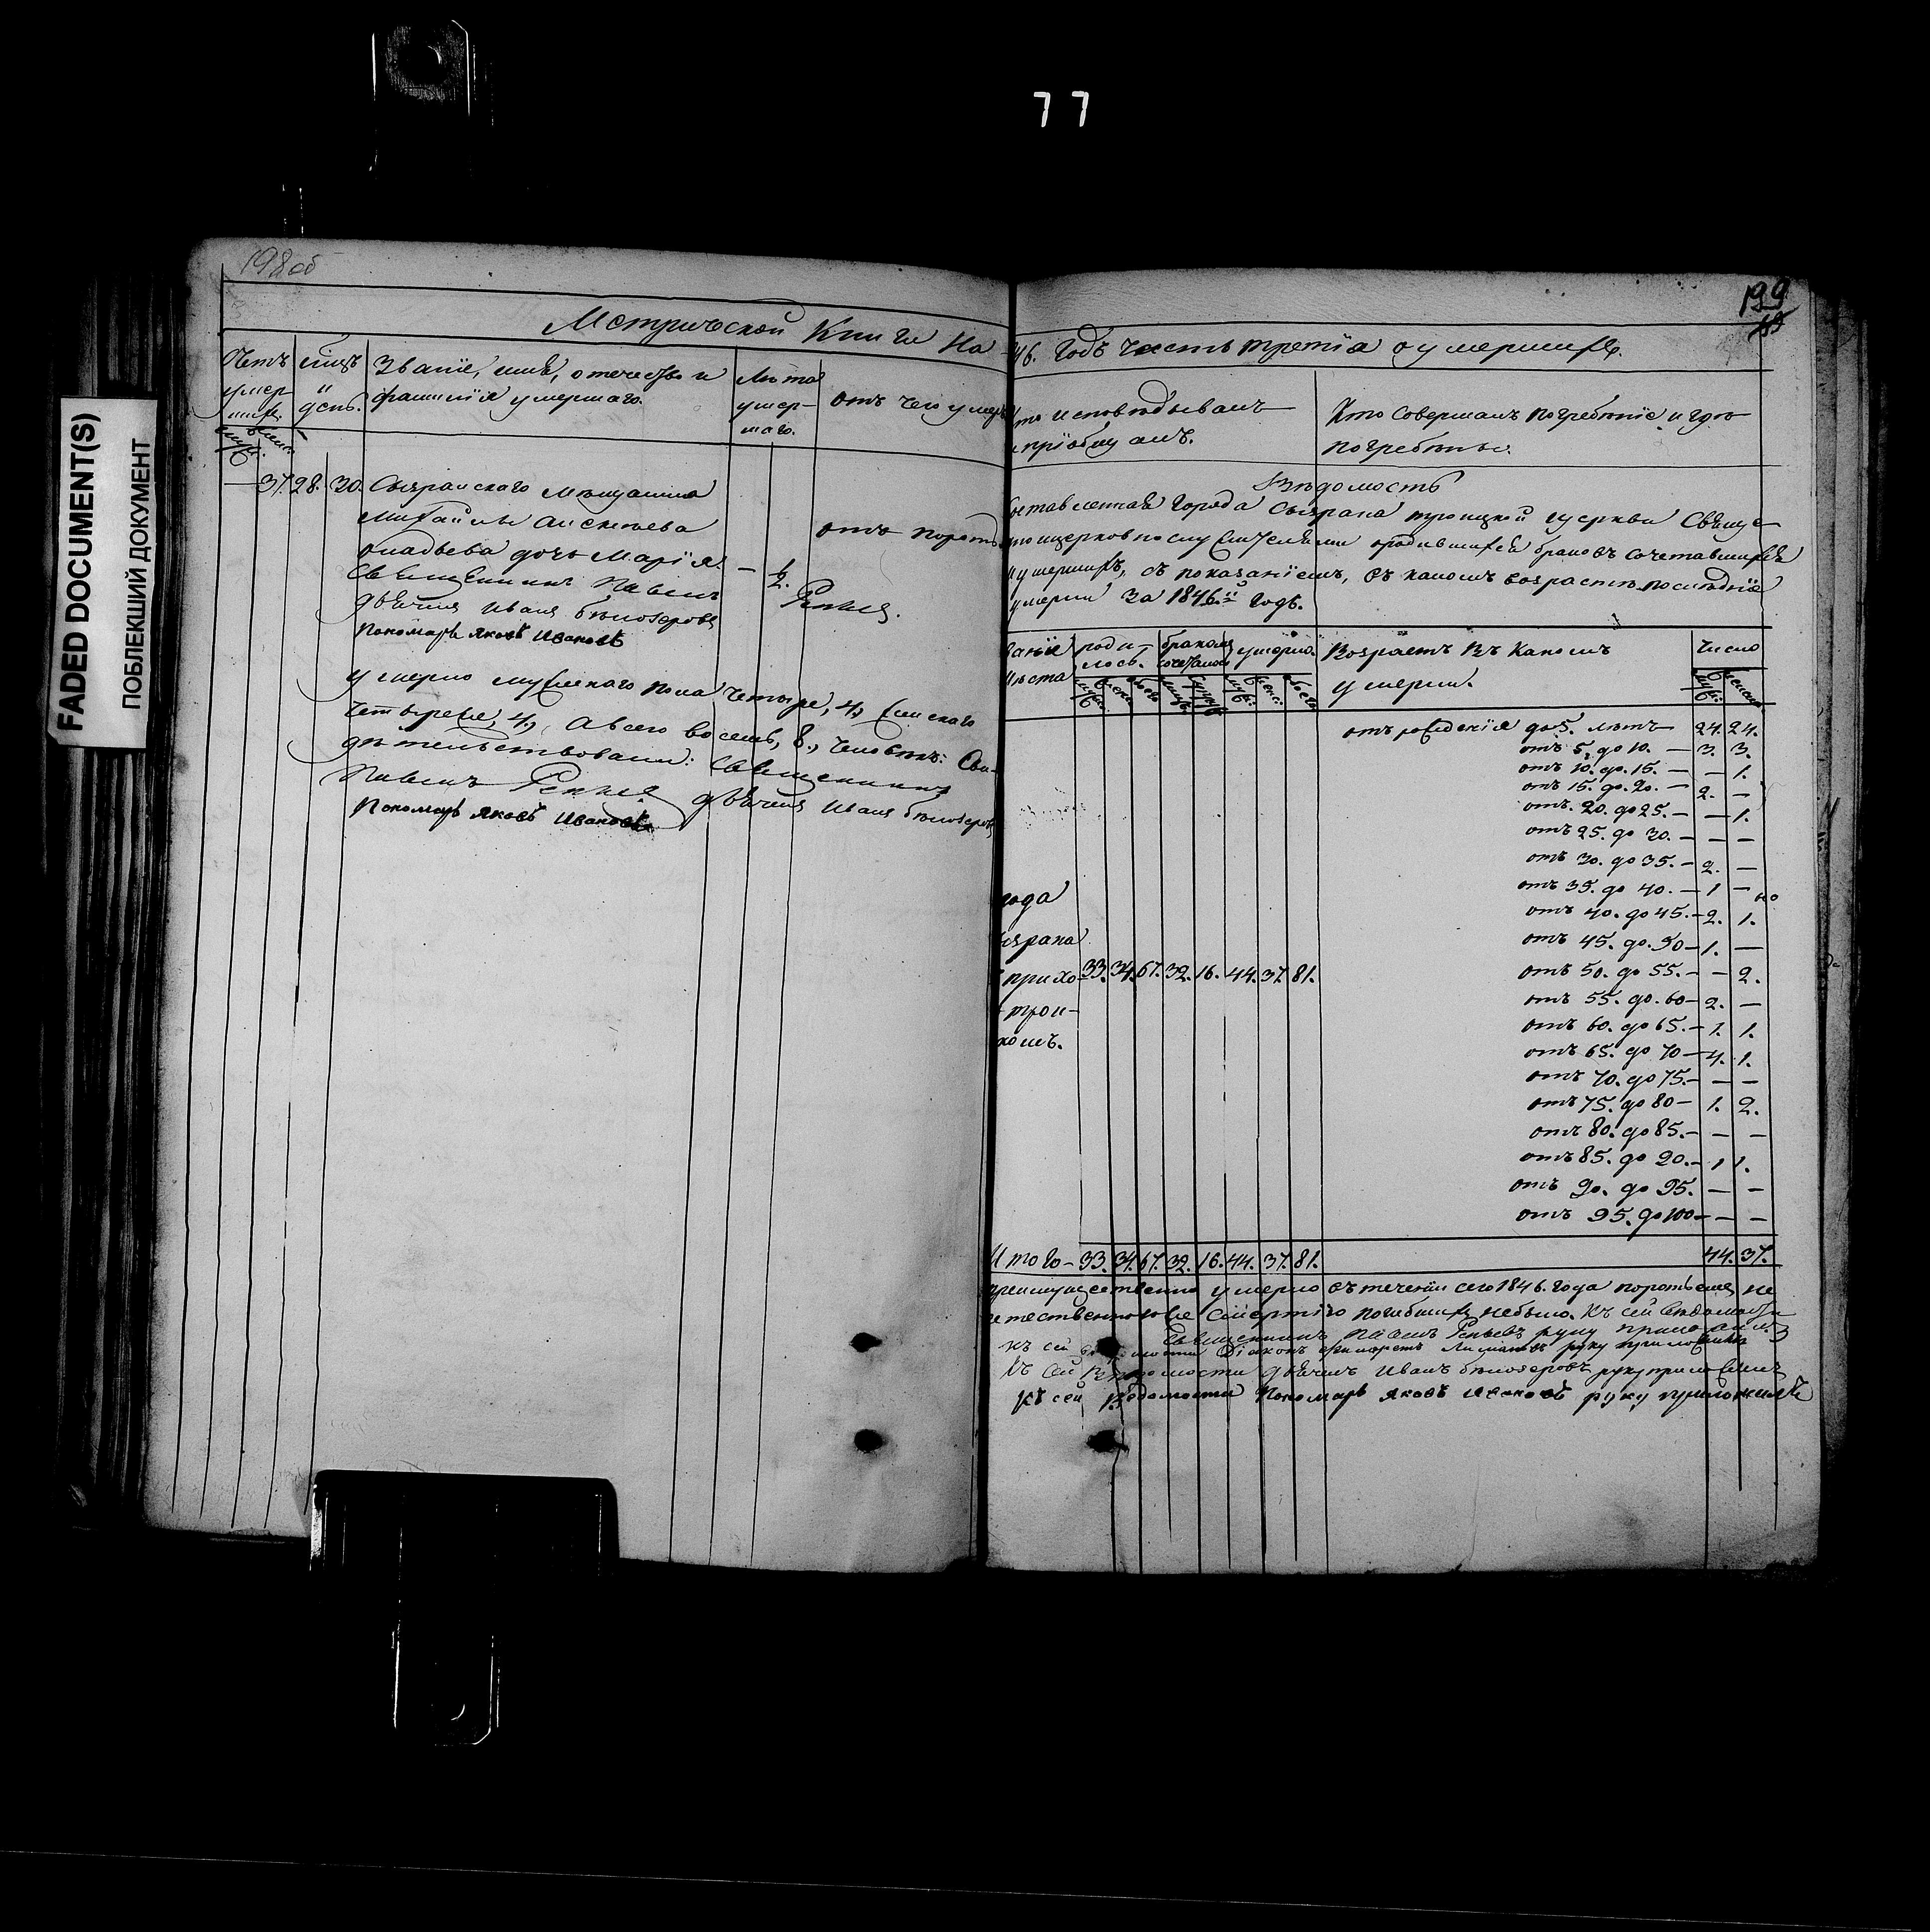 77
FADED DOCUMENT(S)
ПОБЛЕКШИЙ ДОКУМЕНТ
198 об
Метрической Книги на
Счетъ умер-
мѣсяцъ и день.
Званіе, имя, отечество и
фамилія умершаго.
Лѣта
умер-
шаго.
отъ чего умеръ
37. 28. 30. Сызранскаго мѣщанина
Михаила
дочь Марія. — 1/2. отъ
Священникъ Павелъ Репьев
дьячекъ Иванъ Бѣлозеровъ
Пономарь Яковъ Ивановъ
Умерло мужескаго пола четыре, 4, женскаго
четыреже, 4, А всего восемь, 8, человѣкъ: Сви-
дѣтельствовали: Священникъ
Павелъ Репьев дьячекъ Иванъ Бѣлозеровъ
Пономарь Яковъ Ивановъ
199
46. Годъ часть третія о умершихъ.
исповѣдывалъ
пріобщалъ.
Кто совершалъ погребеніе и гдѣ
погребены.
Вѣдомость
города Сызрана троицкой церкви
родившихся браковъ сочетавшихся
умершихъ, съ показаніемъ, въ какомъ возрастѣ послѣдніе
умерли За 1846й годъ.
роди-
лось.
бракомъ
сочеталось
умерло.
Возрастъ въ какомъ
умерли.
Число
отъ рожденія до 5. лѣтъ — 24. 24.
отъ 5. до 10. — 3. 3.
отъ 10. до 15. — — 1.
отъ 15. до 20. — 2. —
отъ 20. до 25. — — 1.
отъ 25. до 30. — — —
отъ 30. до 35. — 2. —
отъ 35. до 40. — 1 —
отъ 40. до 45. — 2. 1.
отъ 45. до 50 — 1. —
33. 34. 67. 32. 16. 44. 37. 81.
отъ 50. до 55. — — 2.
отъ 55. до 60 — 2. —
отъ 60. до 65. — 1. 1.
отъ 65. до 70 — 4. 1.
отъ 70. до 75. — — —
отъ 75. до 80 — 1. 2.
отъ 80. до 85. — — —
отъ 85. до 90. — 1 1.
отъ 90. до 95. — —
отъ 95. до 100 — — —
Итого — 33. 34. 67. 32. 16. 44. 37. 81. 44. 37.
преимущественно умерло въ теченіи сего 1846. года не
смертію погибшихъ небыло. Къ сей вѣдомости
Священникъ Павелъ Репьевъ руку приложилъ
къ сей Діаконъ руку приложилъ
Къ сей Вѣдомости дьячекъ Иванъ Бѣлозеровъ руку приложилъ
Къ сей Вѣдомости Пономарь Яковъ Ивановъ руку приложилъ